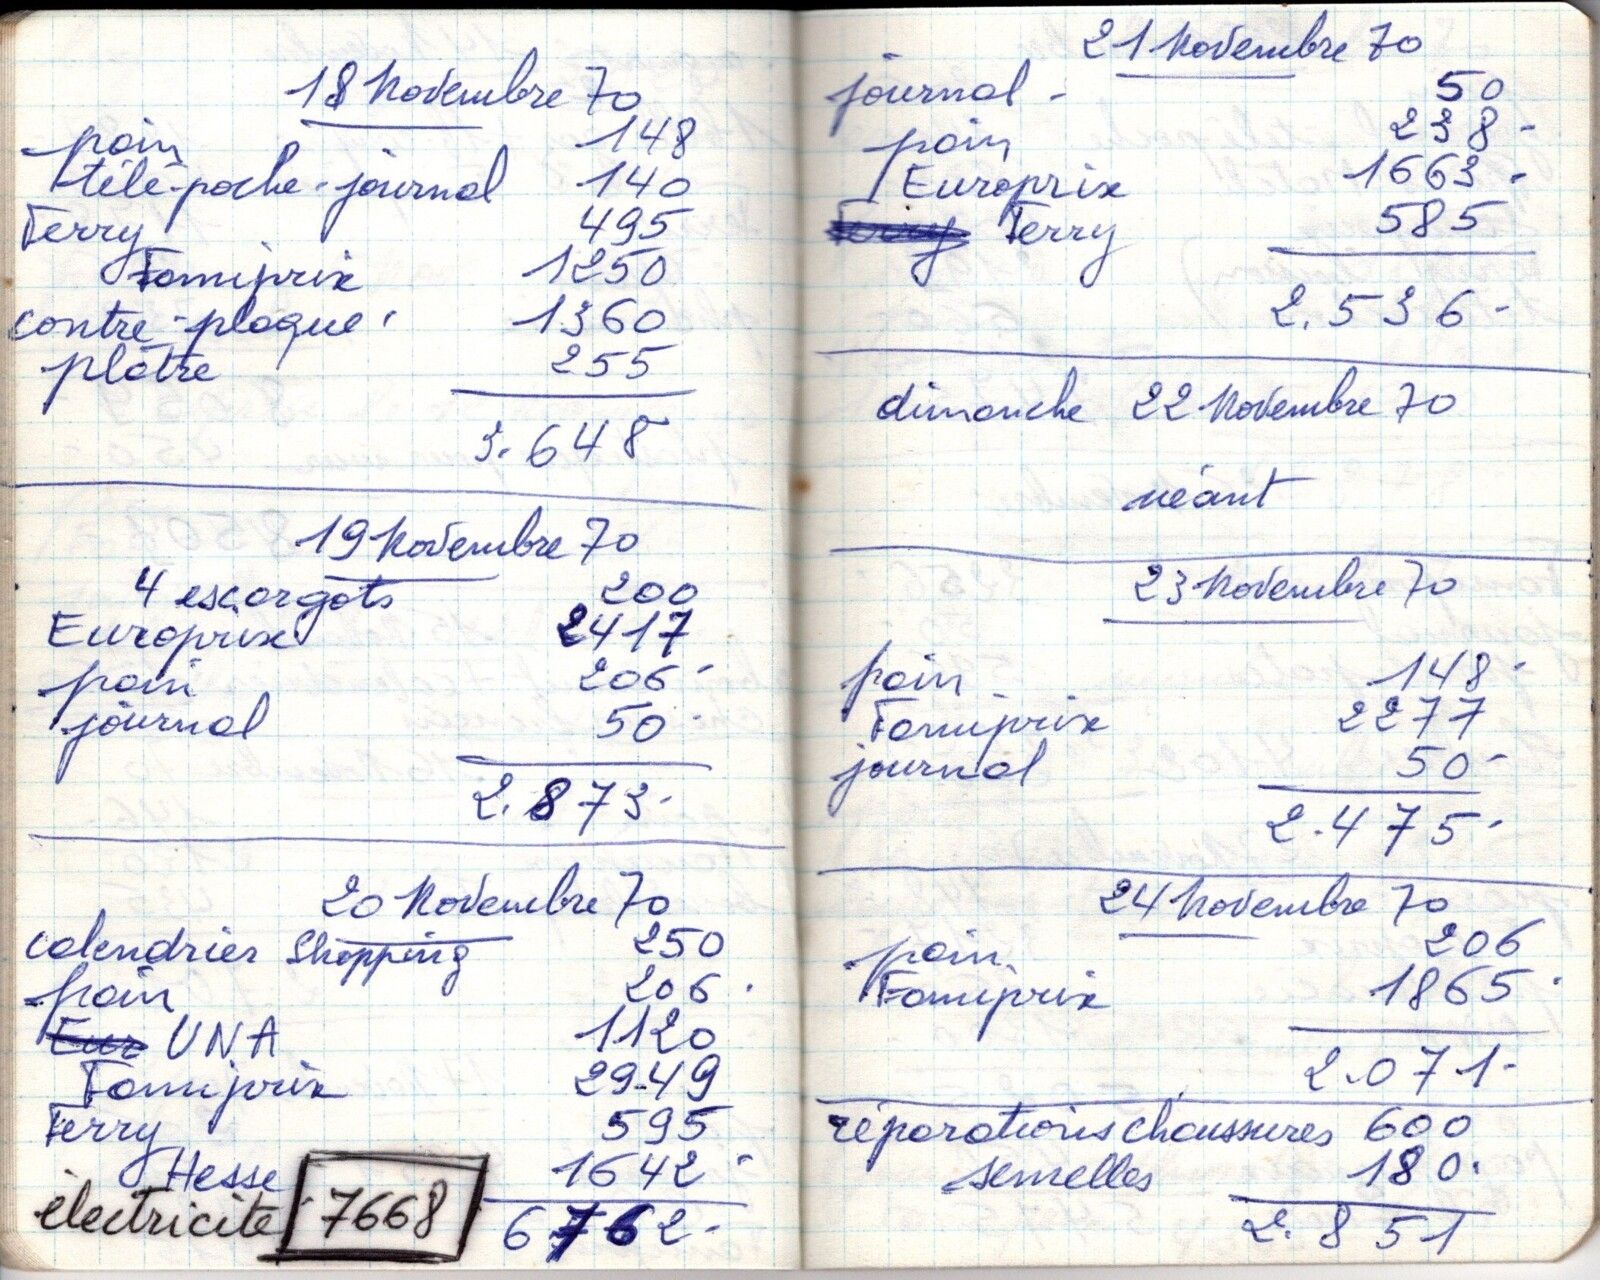 18 Novembre 70
pain 148
télé-poche-journal 140
Ferry 495
Famiprix 1250
contre-plaqué 1360
plâtre 255
3.648
19 Novembre 70
4 escargots 200
Europrix 2417
pain 206-
journal 50-
2.873-
20 Novembre 70
calendrier Shopping 250
pain 206.
Eur UNA 1120
Famiprix 2949
Ferry 595
Hesse 1642-
électricité 7668 6762-
21 Novembre 70
journal - 50
pain 238-
Europrix 1663-
Ferry Ferry 585
2.536-
dimanche 22 Novembre 70
néant
23 Novembre 70
pain - 148-
Famiprix 2277
journal 50-
2.475-
24 Novembre 70
pain 206
Famiprix 1865.
2.071-
réparations chaussures 600
semelles 180.
2.851